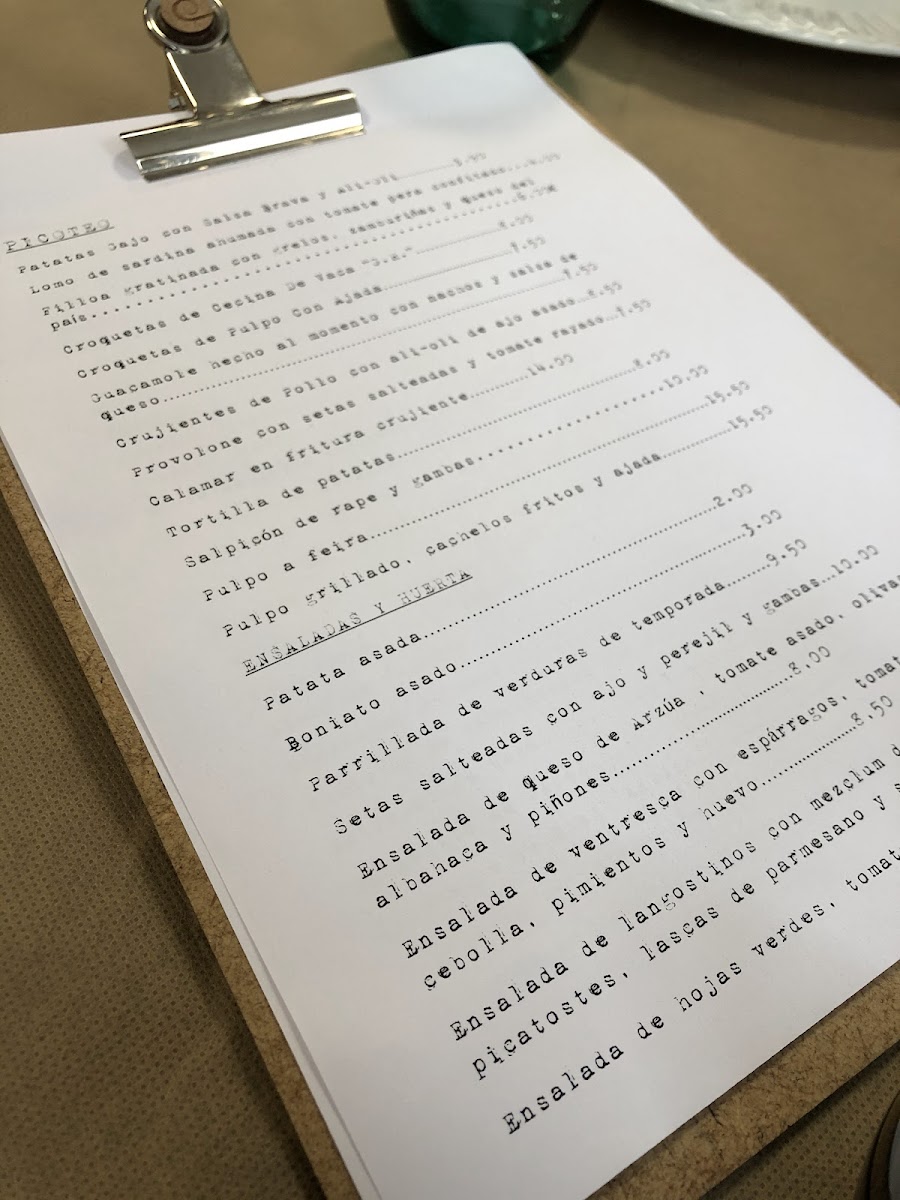 PICOTEO
Patatas Gajo con Salsa Brava y Ali-oli
Lomo de sardina ahumada con tomate pera confitado
Filloa gratinada con grelos, zamburiñas y Queso del
país
Croquetas de Cecina De Vaca
Croquetas de Pulpo Con Ajada
Guacamole hecho al momento con nachos y salsa de
queso
Crujientes de Pollo con ali-oli de ajo asado
Provolone con setas salteadas y tomate rayado
Calamar en fritura crujiente..........14.00
Tortilla de patatas
Salpicón de rape y gambas
Pulpo a feira
Pulpo grillado, cachelos fritos y ajada
ENSALADAS Y HUERTA
Patata asada..........2.00
Boniato asado..........3.00
Parrillada de verduras de temporada.......9.50
Setas salteadas con ajo y perejil y gambas...10.00
Ensalada de queso de Arzúa , tomate asado,
albahaca y piñones..........8.00
Ensalada de ventresca con espárragos,
cebolla, pimientos y huevo..........8.50
Ensalada de langostinos con mezclum
picatostes, lascas de parmesano y
Ensalada de hojas verdes,